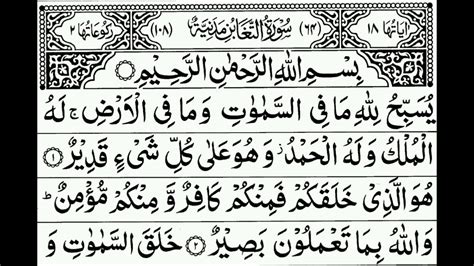 اٰیَاتُهَا ۱۸ (۶۴) سُوْرَةُ التَّغَابُنِ مَدَنِیَّةٌ (۱۰۸) رُكُوْعَاتُهَا ۲
بِسْمِ اللّٰهِ الرَّحْمٰنِ الرَّحِیْمِ
یُسَبِّحُ لِلّٰهِ مَا فِی السَّمٰوٰتِ وَمَا فِی الْاَرْضِ ۚ لَهُ
الْمُلْكُ وَلَهُ الْحَمْدُ ؗ وَهُوَ عَلٰی كُلِّ شَیْءٍ قَدِیْرٌ ۱
هُوَ الَّذِیْ خَلَقَكُمْ فَمِنْكُمْ كَافِرٌ وَّ مِنْكُمْ مُّؤْمِنٌ ؕ
وَاللّٰهُ بِمَا تَعْمَلُوْنَ بَصِیْرٌ ۲ خَلَقَ السَّمٰوٰتِ وَ